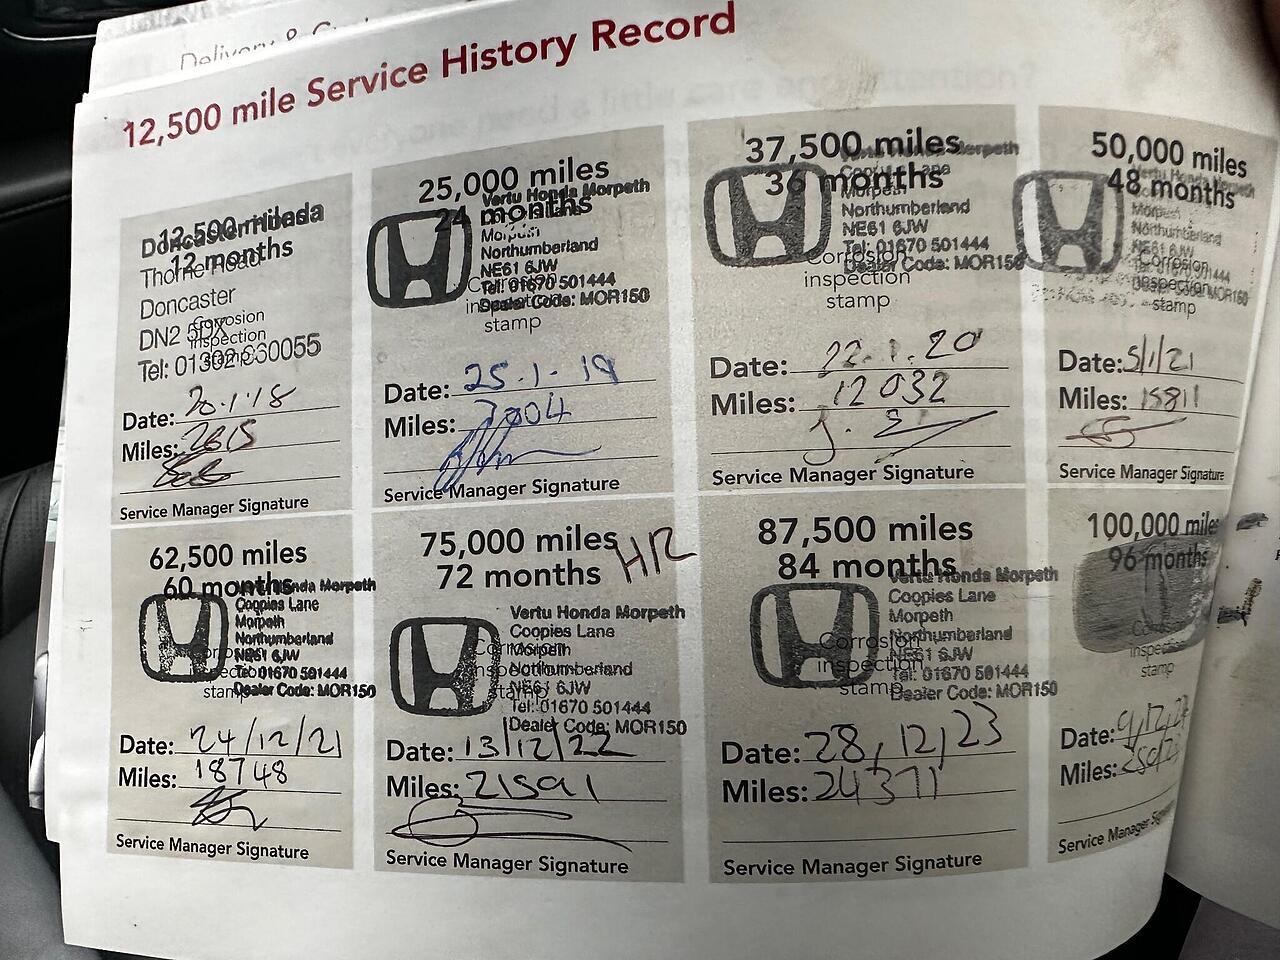 Delivery &
12,500 mile Service History Record
12,500 miles
12 months
Doncaster Honda
Thorne Road
Doncaster
DN2 5DX
Tel: 01302 360055
Corrosion
inspection
stamp
Date: 20.1.18
Miles: 2615
Service Manager Signature
25,000 miles
24 months
Vertu Honda Morpeth
Coopies Lane
Morpeth
Northumberland
NE61 6JW
Tel: 01670 501444
Dealer Code: MOR150
Corrosion
inspection
stamp
Date: 25.1.19
Miles: 7004
Service Manager Signature
37,500 miles
36 months
Vertu Honda Morpeth
Coopies Lane
Morpeth
Northumberland
NE61 6JW
Tel: 01670 501444
Dealer Code: MOR150
Corrosion
inspection
stamp
Date: 22.1.20
Miles: 12032
Service Manager Signature
50,000 miles
48 months
Vertu Honda Morpeth
Morpeth
Northumberland
NE61 6JW
Dealer Code: MOR150
Corrosion
inspection
stamp
Date: 5/1/21
Miles: 15811
Service Manager Signature
62,500 miles
60 months
Vertu Honda Morpeth
Coopies Lane
Morpeth
Northumberland
NE61 6JW
Tel: 01670 501444
Dealer Code: MOR150
Corrosion
inspection
stamp
Date: 24/12/21
Miles: 18748
Service Manager Signature
75,000 miles
72 months
HR
Vertu Honda Morpeth
Coopies Lane
Morpeth
Northumberland
NE61 6JW
Tel: 01670 501444
Dealer Code: MOR150
Corrosion
inspection
stamp
Date: 13/12/22
Miles: 21591
Service Manager Signature
87,500 miles
84 months
Vertu Honda Morpeth
Coopies Lane
Morpeth
Northumberland
NE61 6JW
Tel: 01670 501444
Dealer Code: MOR150
Corrosion
inspection
stamp
Date: 28/12/23
Miles: 24371
Service Manager Signature
100,000 miles
96 months
Corrosion
inspection
stamp
Date:
Miles:
Service Manager Signature